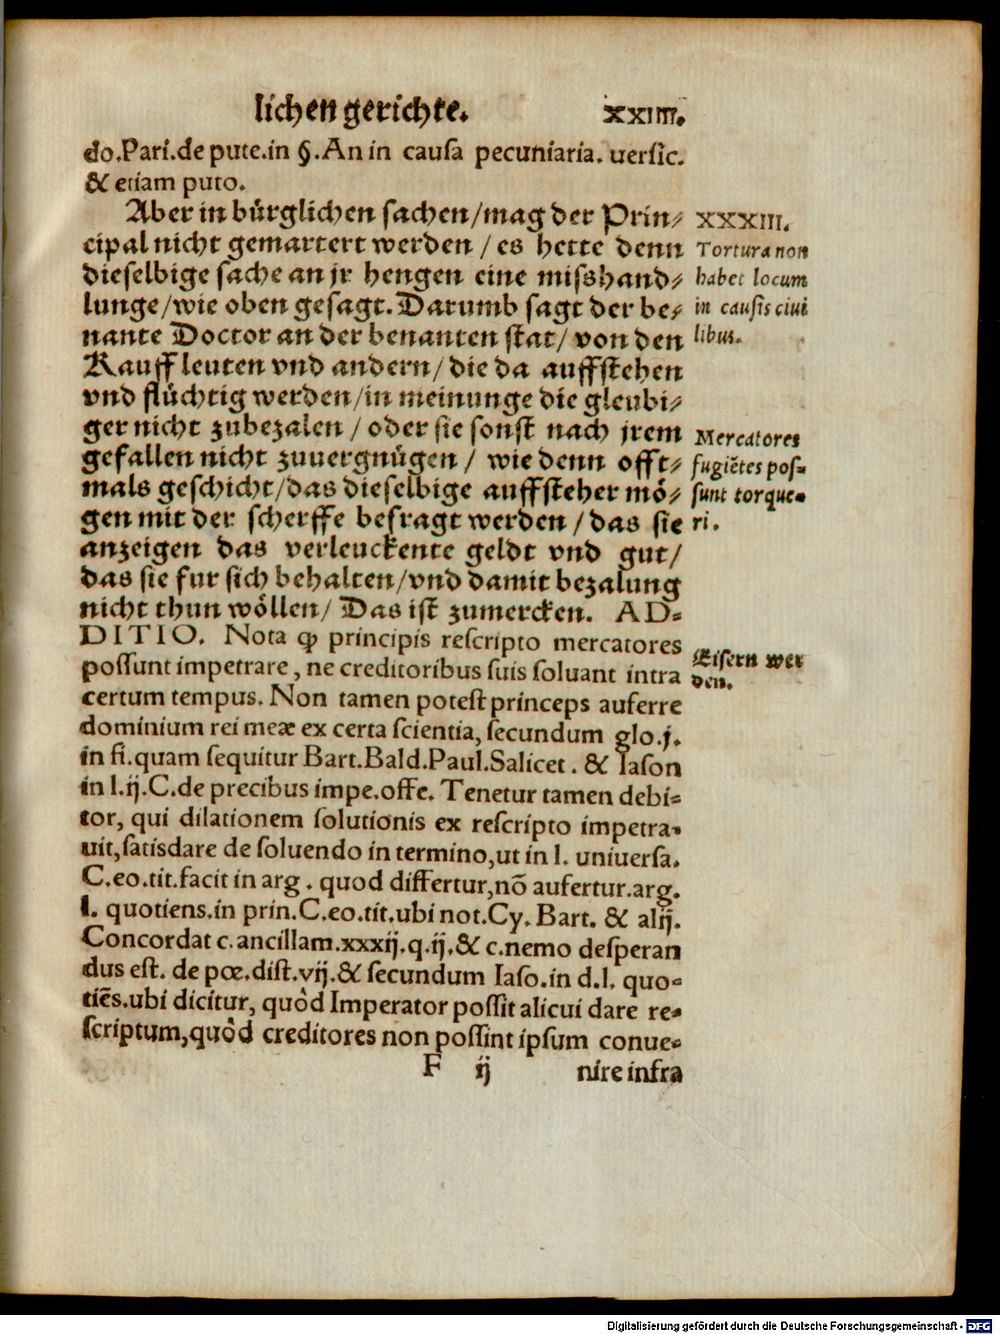 lichen gerichte. XXIIII.
do.Pari.de pute.in §.An in causa pecuniaria. uersic.
& etiam puto.
Aber in bürglichen sachen/mag der Prin⸗
cipal nicht gemartert werden / es hette denn
dieselbige sache an jr hengen eine misshand⸗
lunge/wie oben gesagt. Darumb sagt der be⸗
nante Doctor an der benanten stat/ von den
Kauffleuten vnd andern/ die da auffstehen
vnd flüchtig werden/in meinunge die gleubi⸗
ger nicht zubezalen / oder sie sonst nach jrem
gefallen nicht zuuergnügen / wie denn offt⸗
mals geschicht/das dieselbige auffsteher mö⸗
gen mit der scherffe befragt werden / das sie
anzeigen das verleuckente geldt vnd gut/
das sie fur sich behalten/vnd damit bezalung
nicht thun wöllen/ Das ist zumercken. AD-
DITIO. Nota ꝙ principis rescripto mercatores
possunt impetrare, ne creditoribus suis soluant intra
certum tempus. Non tamen potest princeps auferre
dominium rei meæ ex certa scientia, secundum glo.j.
in fi.quam sequitur Bart.Bald.Paul.Salicet. & Iason
in l.ij.C.de precibus impe.offe. Tenetur tamen debi-
tor, qui dilationem solutionis ex rescripto impetra-
uit,satisdare de soluendo in termino,ut in l. uniuersa.
C.eo.tit.facit in arg. quod differtur,nõ aufertur.arg.
l. quotiens.in prin.C.eo.tit.ubi not.Cy. Bart. & alij.
Concordat c.ancillam.xxxij.q.ij.& c.nemo desperan
dus est. de pœ.dist.vij.& secundum Iaso.in d.l. quo-
tiẽs.ubi dicitur, quòd Imperator possit alicui dare re-
scriptum,quòd creditores non possint ipsum conue-
F ij nire infra
XXXIII.
Tortura non
habet locum
in causis ciui
libus.
Mercatores
fugiẽtes pos-
sunt torque-
ri.
Eisern wer
den.
Digitalisierung gefördert durch die Deutsche Forschungsgemeinschaft - DFG